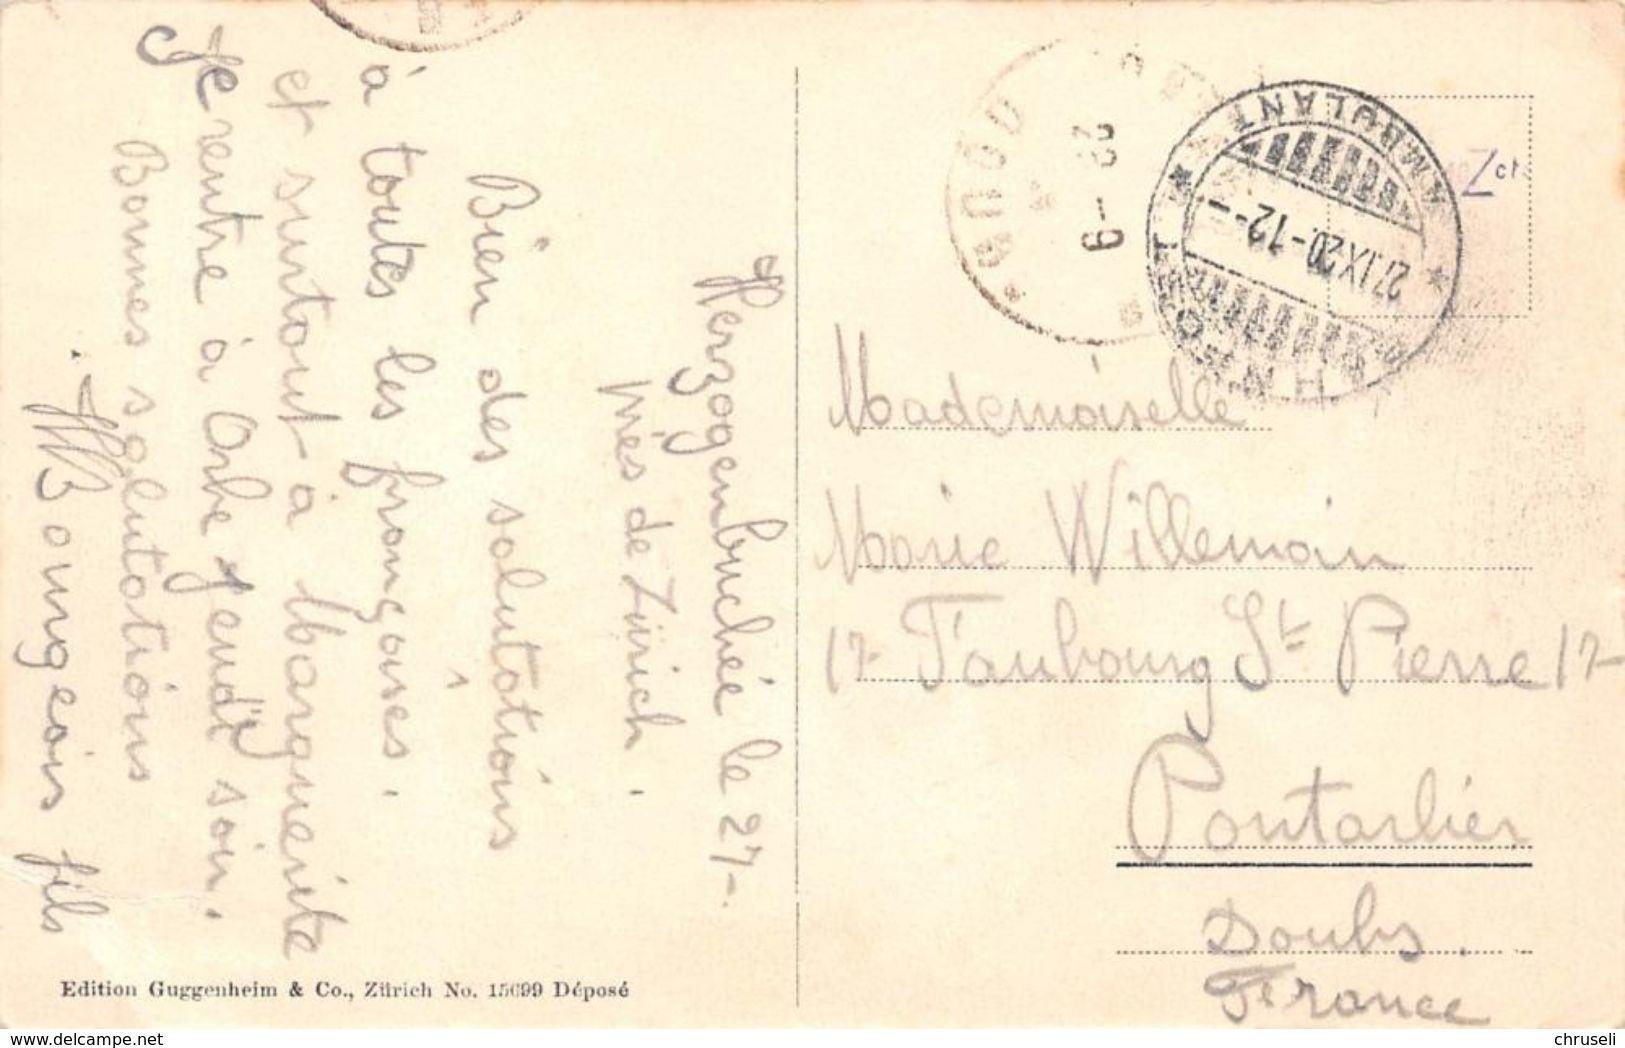 Herzogenbuchée le 27-.
près de Zürich.
Bien des salutations
à toutes les françaises.
et surtout à Marguerite
Je rentre à Orbe jeudi soir.
Bonnes salutations
Bourgeois fils
Edition Guggenheim & Co., Zürich No. 15099 Déposé
22 -9
AMBULANT
27.IX.20.-12-
Mademoiselle
Marie Willemain
17 Faubourg St Pierre 17
Pontarlier
Doubs.
France
chruseli
delcampe.net